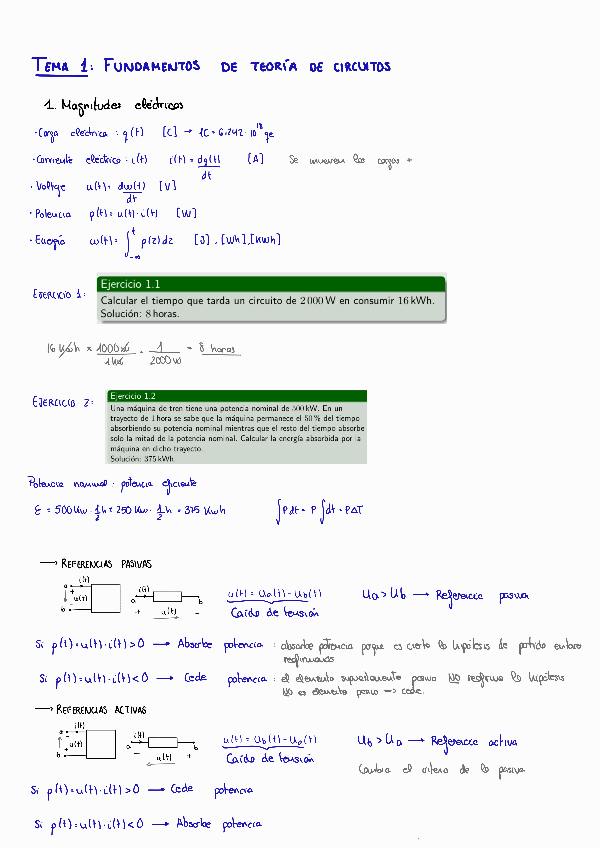 TEMA 1: FUNDAMENTOS DE TEORÍA DE CIRCUITOS
1. Magnitudes eléctricas
· Carga eléctrica : q(t) [C] → 1C = 6.242·10^18 qe
· Corriente eléctrica : i(t) i(t) = dq(t)/dt [A] Se mueven las cargas +
· Voltaje u(t) = dw(t)/dt [V]
· Potencia p(t) = u(t)·i(t) [W]
· Energía w(t) = ∫_-∞^t p(z)dz [J], [Wh], [KWh]
EJERCICIO 1:
Ejercicio 1.1
Calcular el tiempo que tarda un circuito de 2 000 W en consumir 16 kWh.
Solución: 8 horas.
16 Kwh × 1000w/1kw · 1/2000w = 8 horas
EJERCICIO 2:
Ejercicio 1.2
Una máquina de tren tiene una potencia nominal de 500 kW. En un
trayecto de 1 hora se sabe que la máquina permanece el 50 % del tiempo
absorbiendo su potencia nominal mientras que el resto del tiempo absorbe
solo la mitad de la potencia nominal. Calcular la energía absorbida por la
máquina en dicho trayecto.
Solución: 375 kWh.
Potencia nominal : potencia eficiente
E = 500 Kw · 1/2 h + 250 Kw · 1/2 h = 375 Kwh ∫Pdt = P ∫dt = PΔT
→ REFERENCIAS PASIVAS
i(t) a + u(t) - b
i(t) a b + u(t) -
u(t) = Ua(t) - Ub(t) Ua > Ub → Referencia pasiva
Caída de tensión
Si p(t) = u(t)·i(t) > 0 → Absorbe potencia : absorbe potencia porque es cierta la hipótesis de partida
Si p(t) = u(t)·i(t) < 0 → Cede potencia : el elemento supuestamente pasivo NO reafirma la hipótesis
NO es elemento pasivo => cede.
→ REFERENCIAS ACTIVAS
i(t) a - u(t) + b
i(t) a b - u(t) +
u(t) = Ub(t) - Ua(t) Ub > Ua → Referencia activa
Caída de tensión
Cambia el criterio de la pasiva
Si p(t) = u(t)·i(t) > 0 → Cede potencia
Si p(t) = u(t)·i(t) < 0 → Absorbe potencia